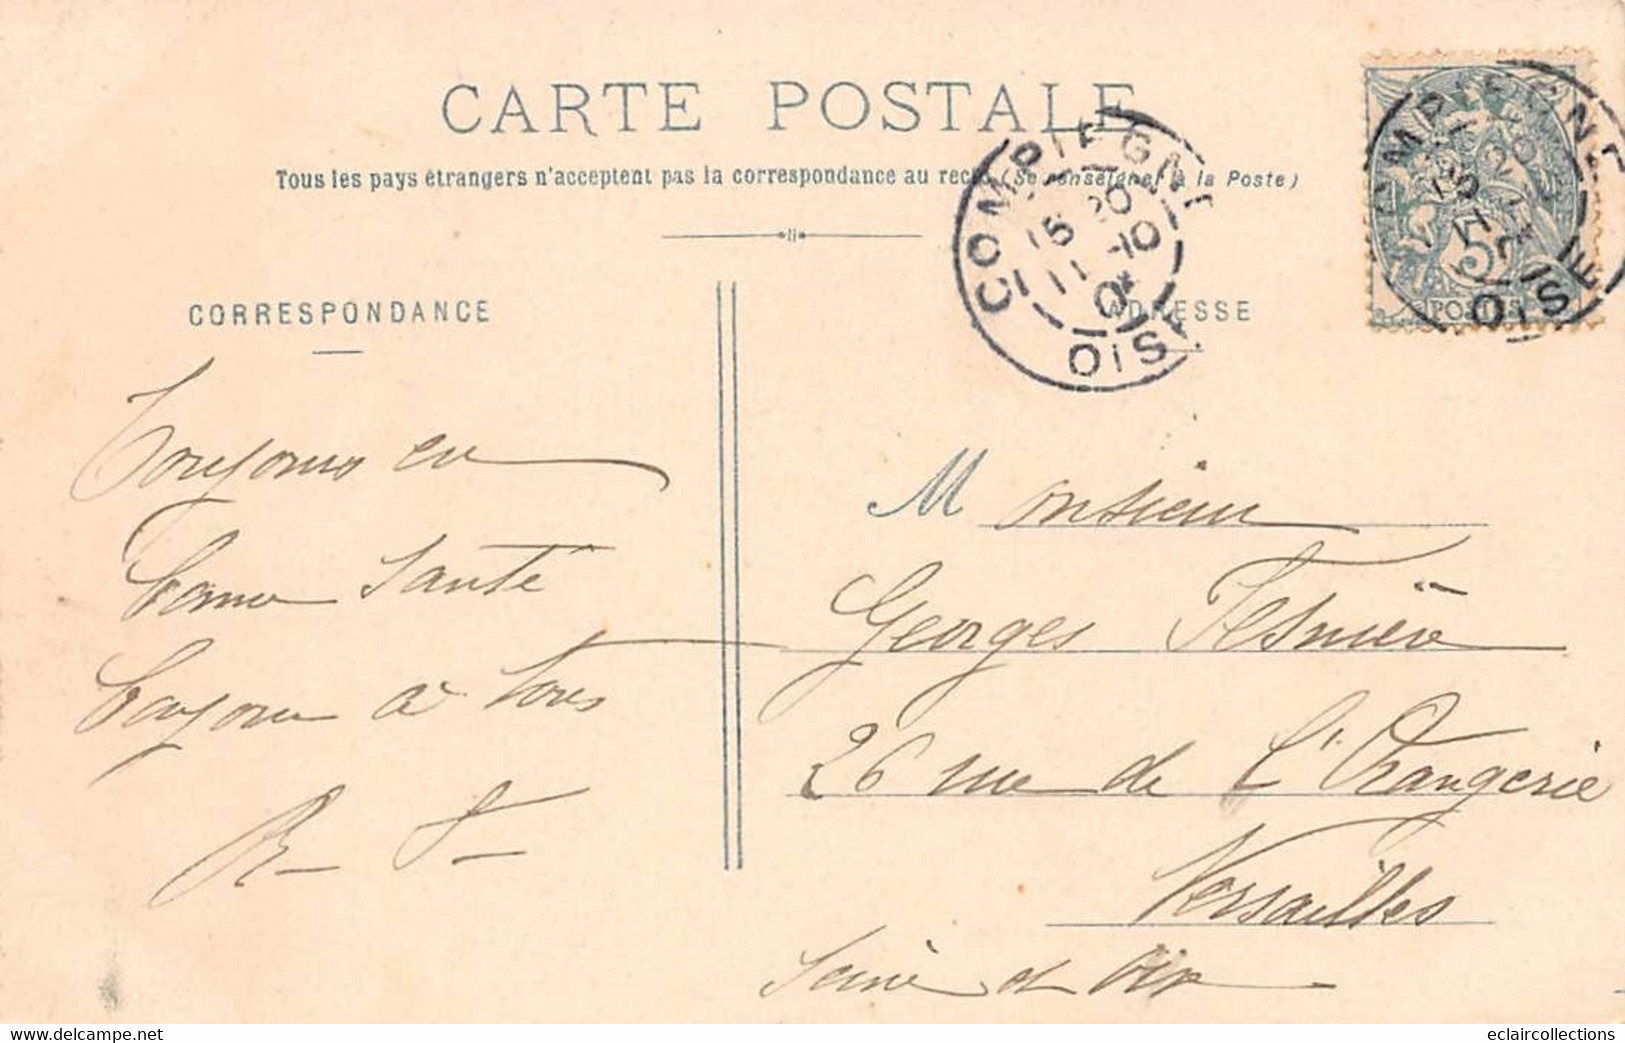 CARTE POSTALE
Tous les pays étrangers n'acceptent pas la correspondance au recto (Se renseigner à la Poste)
CORRESPONDANCE
ADRESSE
COMPIEGNE
15 20
11 -10
OISE
COMPIEGNE
OISE
5
POSTES
Toujours en
bonne Santé
bonjour à tous
R. T.
Monsieur
Georges Tesnière
26 rue de l'Orangerie
Versailles
Seine et Oise
www.delcampe.net
eclaircollections